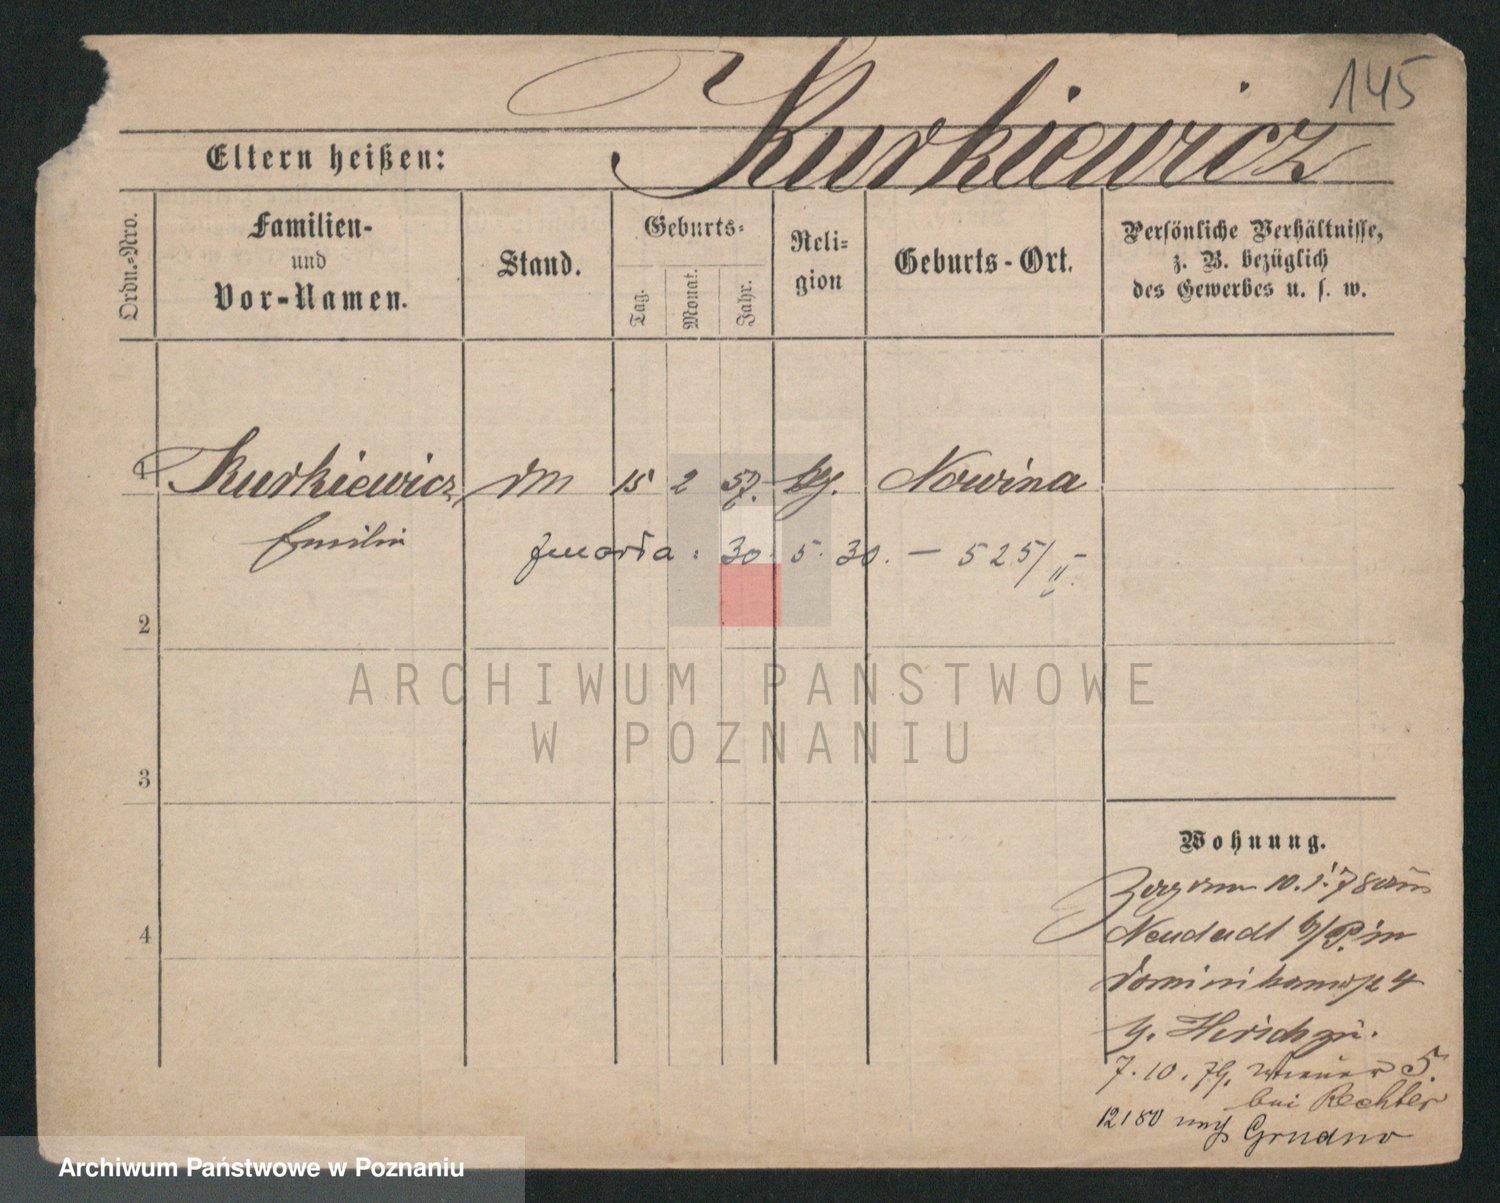 145
Kurkiewicz
Eltern heißen:
Ordn.-Nro.
Familien-
und
Vor-Namen.
Stand.
Geburts-
Tag.
Monat.
Jahr.
Reli-
gion
Geburts-Ort.
Persönliche Verhältnisse,
z. B. bezüglich
des Gewerbes u. s. w.
1 Kurkiewicz 15 2 57. Nowina
Emilie
zmarła: 30. 5. 30. — 525/II-
2
ARCHIWUM PAŃSTWOWE
W POZNANIU
3
Wohnung.
10. 1. 78
4
Neustadt b/P. in
4
7. 10. 79. Wiener 5.
bei Rechter
12 1 80 Grudno
Archiwum Państwowe w Poznaniu